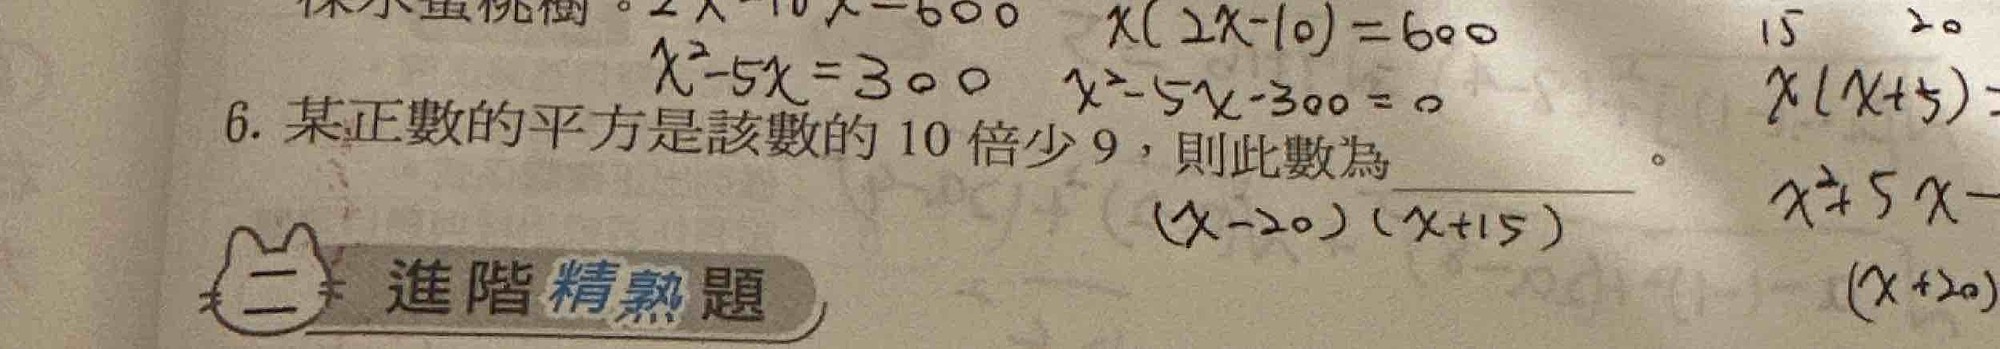 棵水蜜桃樹。2x²-10x=600 x(2x-10)=600 15 20
x²-5x=300 x²-5x-300=0 x(x+5)=
6. 某正數的平方是該數的 10 倍少 9，則此數為______。
(x-20)(x+15) x²+5x-
二 進階精熟題 (x+20)